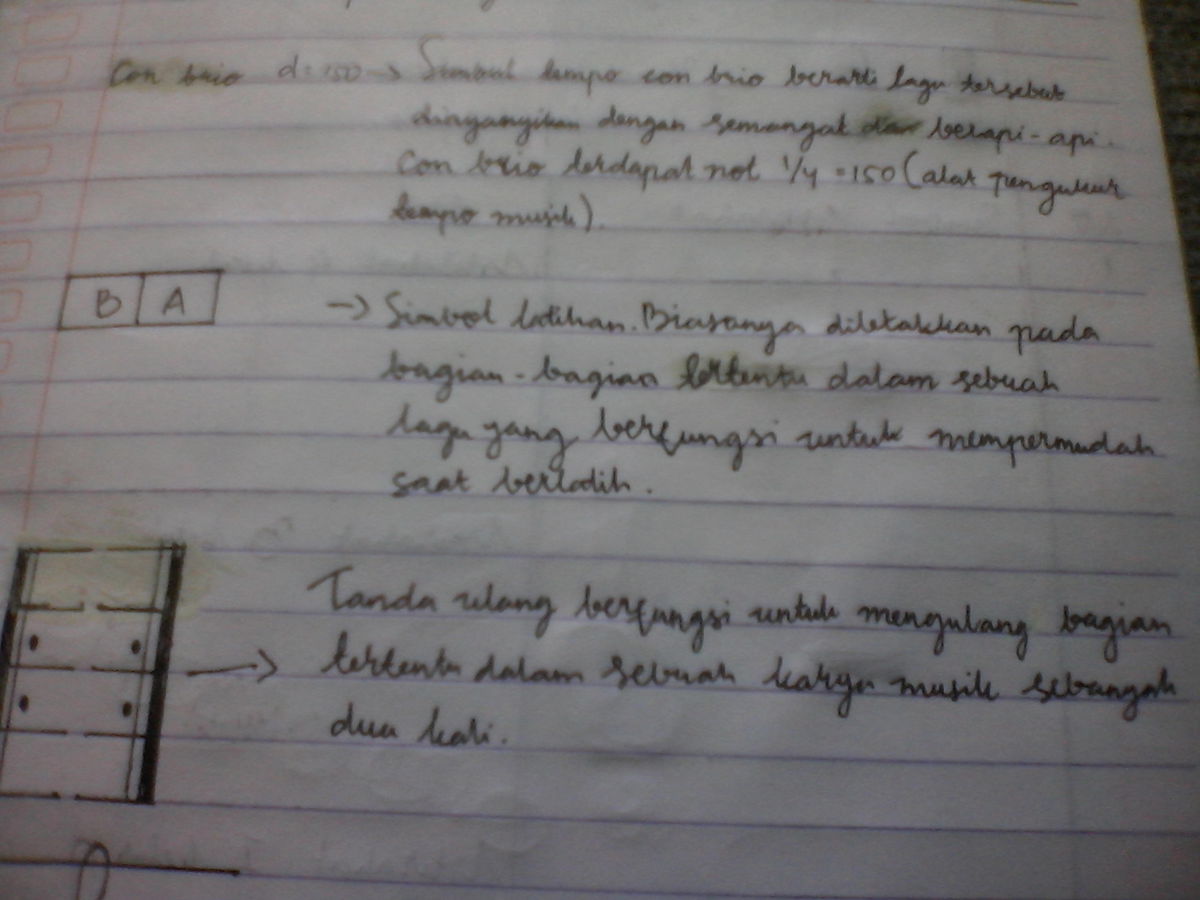 Con brio d = 150 → Simbol tempo con brio berarti lagu tersebut
dinyanyikan dengan semangat dan berapi-api.
Con brio terdapat not 1/4 = 150 (alat pengukur
tempo musik).
B A → Simbol latihan. Biasanya diletakkan pada
bagian-bagian tertentu dalam sebuah
lagu yang berfungsi untuk mempermudah
saat berlatih.
Tanda ulang berfungsi untuk mengulang bagian
→ tertentu dalam sebuah karya musik sebanyak
dua kali.